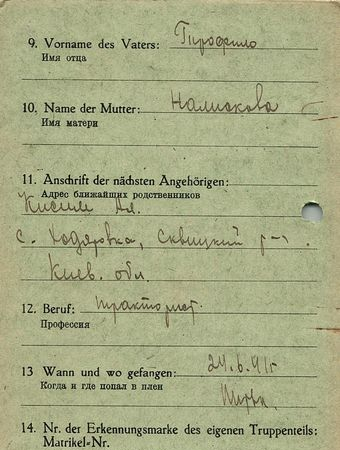 9. Vorname des Vaters: Тирофило
Имя отца
10. Name der Mutter:
Имя матери
11. Anschrift der nächsten Angehörigen:
Адрес ближайших родственников
с. Ходяровка, Сквицкий р-н.
Киев. обл.
12. Beruf: тракторист.
Профессия
13 Wann und wo gefangen: 24.6.41г
Когда и где попал в плен
14. Nr. der Erkennungsmarke des eigenen Truppenteils:
Matrikel-Nr.